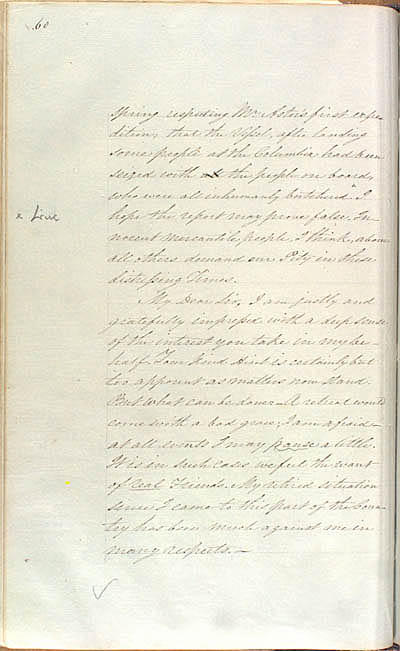 60
spring respecting Mr. Astor's first expe
dition, that the Vessel, after landing
some people at the Columbia, had been
seized with all the people on board,
who were all inhumanly butchered. I
hope the report may prove false. In
x Live
nocent mercantile people, I think, above
all others demand our Pity in these
distressing Times.
My Dear Sir, I am justly and
gratefully impressed with a deep sense
of the interest you take in my be-
half. Your kind Hint is certainly but
too apparent as matters now stand.
But what can be done - A retreat would
come with a bad grace; I am afraid -
at all events I may pause a little.
It is in such cases we feel the want
of real Friends. My retired situation
since I came to this part of the Coun
try has been much against me in
many respects. -